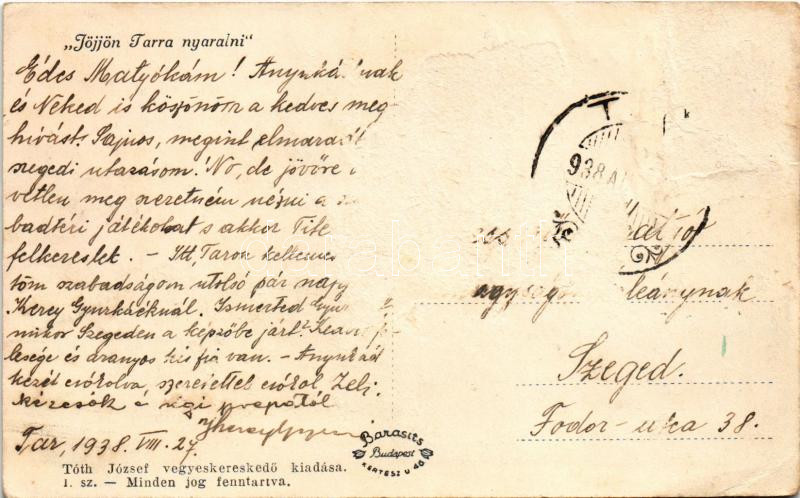 „Jöjjön Tarra nyaralni"
Édes Matyókám! Anyuká
és Neked is köszönöm a kedves meg
hívást. Sajnos, megint elmaradt
szegedi utazásom! No, de jövőre
vetlen meg szeretném nézni a
badtéri játékokat s akkor Tite
felkereslek. – Itt, Taron kelleme
töm szabadságom utolsó pár nap
Kerey Gyurkáéknál. Ismerted
mikor Szegeden a képzőbe járt?
lesége és aranyos kis fia van. – Anyukád
kezét csókolva, szeretettel csókol, Zeli.
Kézcsók
Tar, 1938. VIII. 27.
Tóth József vegyeskereskedő kiadása.
1. sz. — Minden jog fenntartva.
Barasits
Budapest
KERTÉSZ U 46
T
938 A
leánynak
Szeged.
Fodor-utca 38.